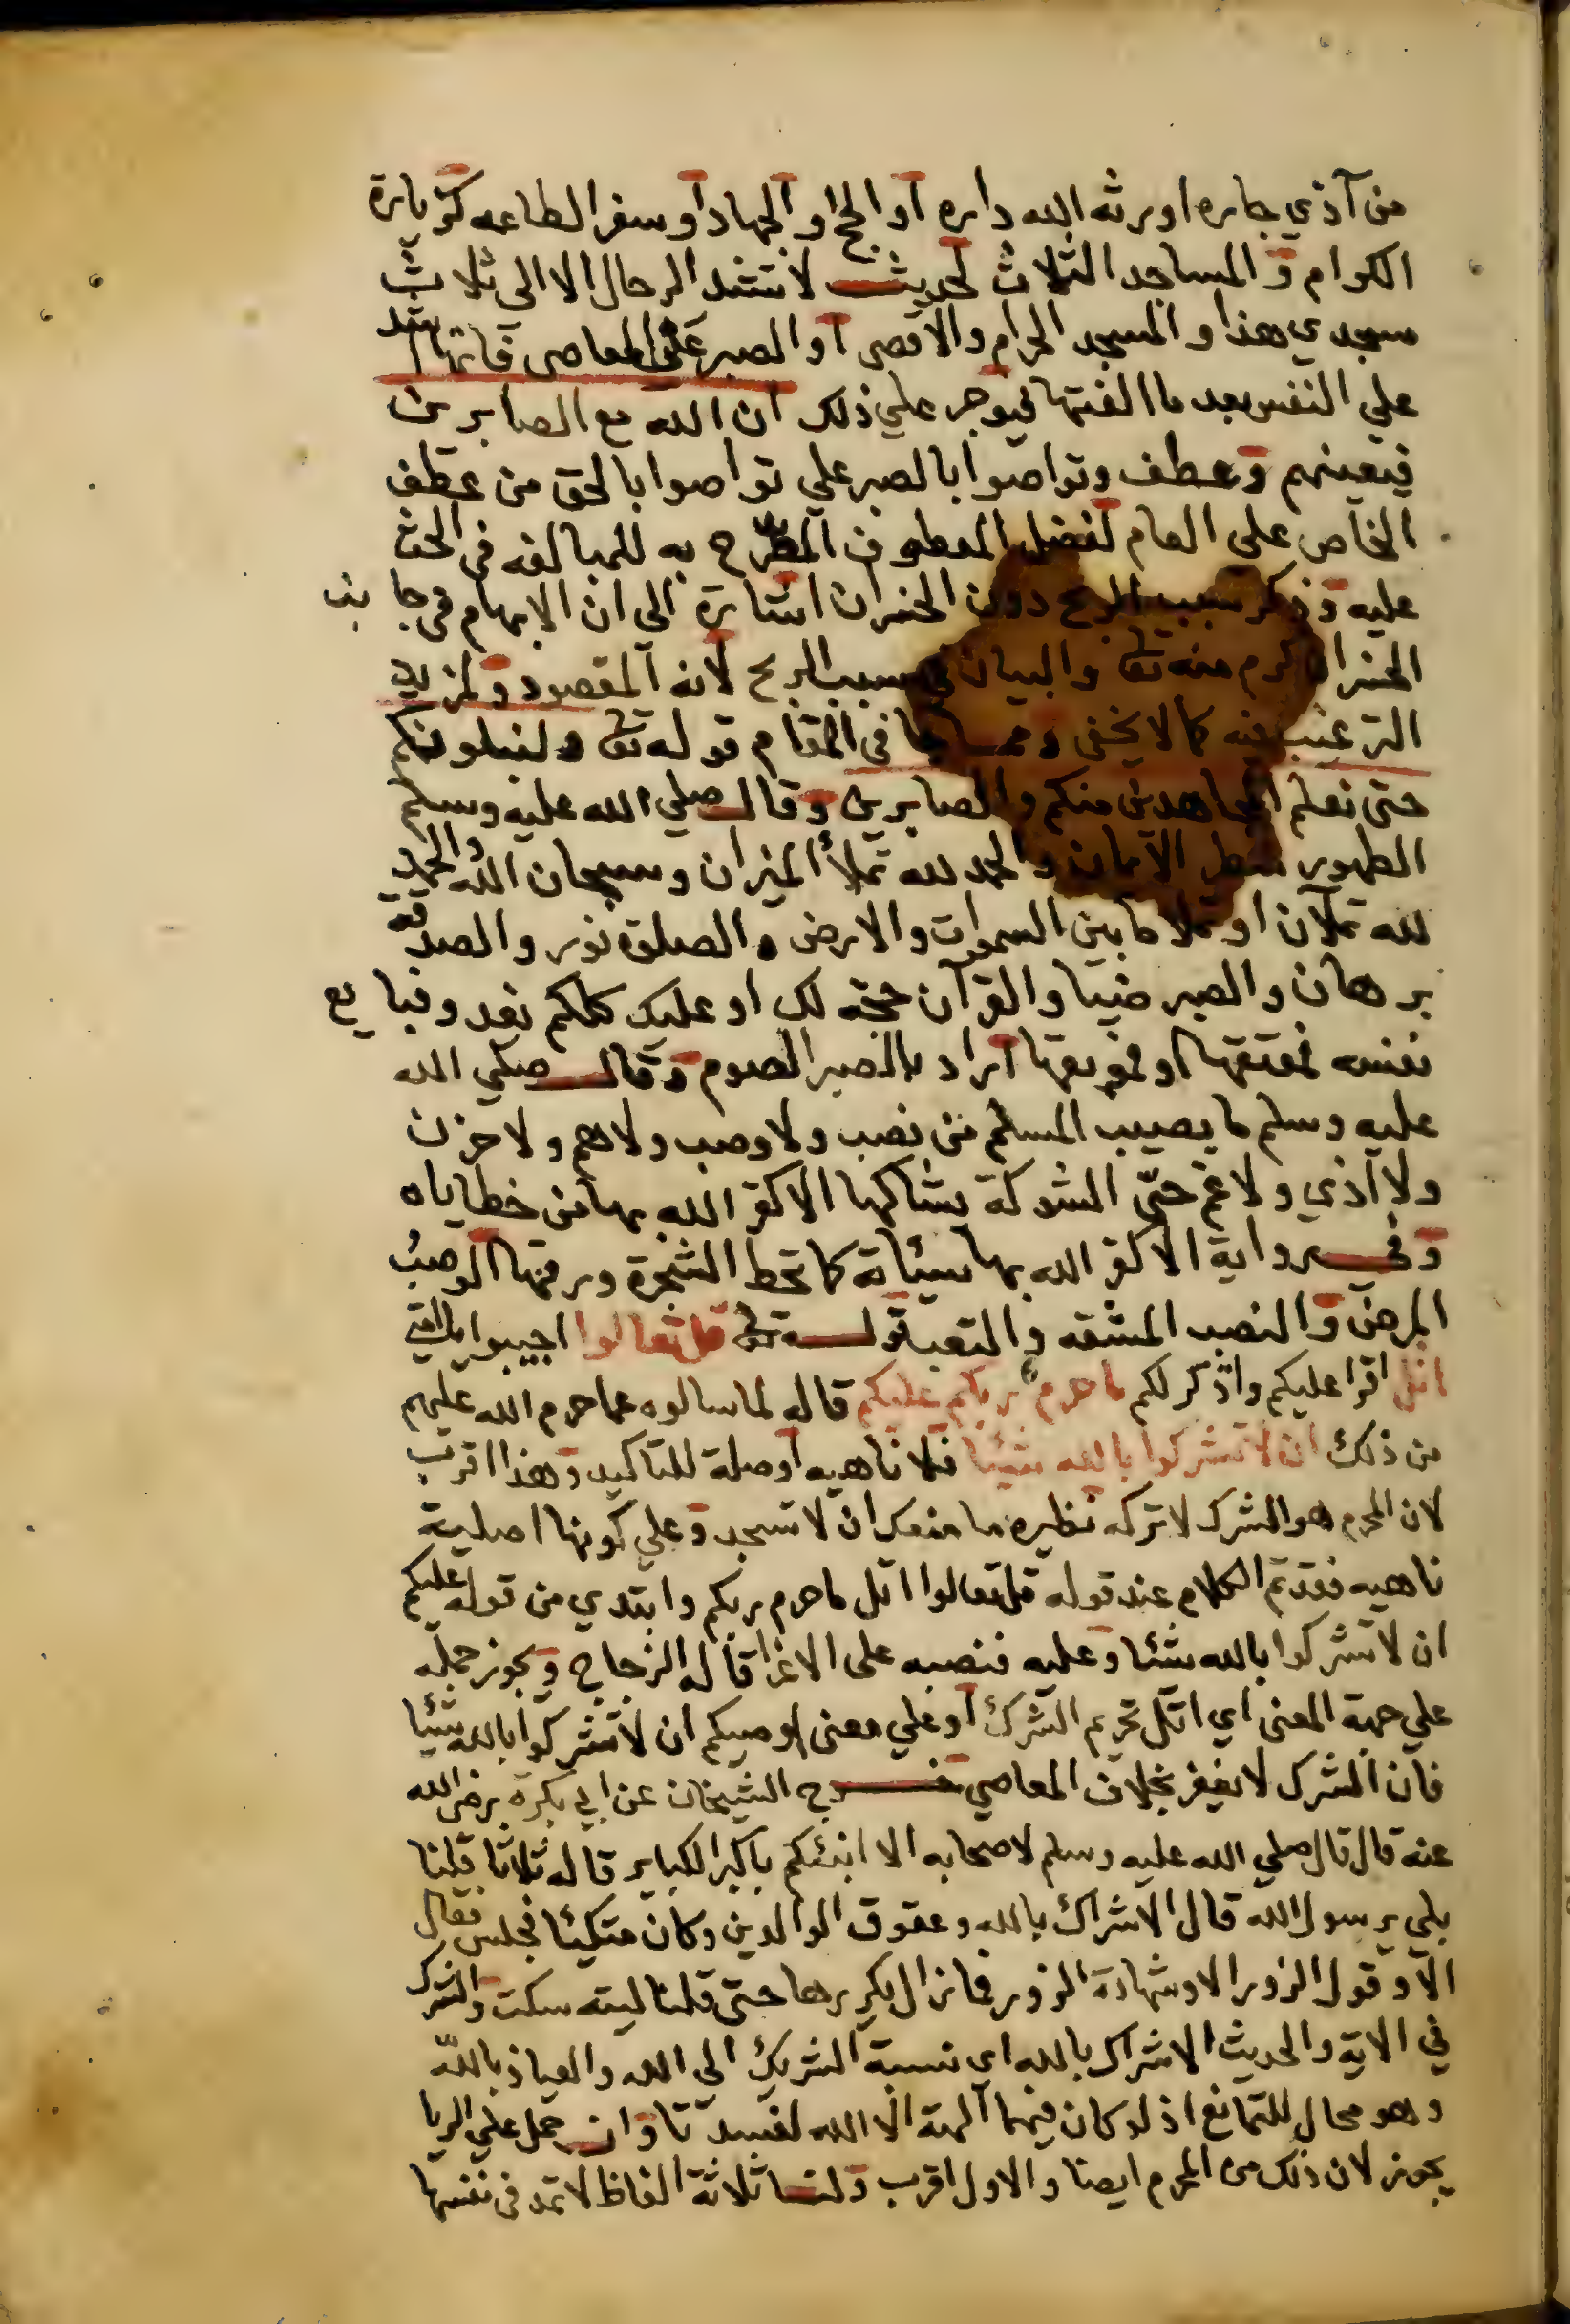 من آذي جاره اورثه الله داره او الحج او الجهاد او سفر الطاعه كزيارة
الكرام و المساجد الثلاث لحديث لا تشد الرحال الا الى ثلاث
مسجدي هذا والمسجد الحرام والاقصى او الصبر على المعاصى فانها تشتد
علي النفس بعد ما الفتها فيوجر علي ذلك ان الله مع الصابرين
فيعينهم وعطف وتواصوا بالصبر علي تواصوا بالحق من عطف
الخاص على العام لفضل المعطوف المصرح به للمبالغه في الحث
عليه وذكر سبب الربح دون الخسران اشارة الى ان الابهام في جانب
الخسران كرم منه تعا والبيان في سبب الربح لانه المقصود ولمزيد
الترغيب فيه كما لا يخفى ومما جا في المقام قوله تعا ولنبلونكم
حتى نعلم المجاهدين منكم والصابرين وقال صلي الله عليه وسلم
الطهور شطر الايمان والحمد لله تملأ الميزان وسبحان الله والحمد
لله تملآن او تملا ما بين السموات والارض والصلوة نور والصدقة
برهان والصبر ضيا والقرآن حجة لك او عليك كلكم يغدو فبايع
نفسه فمعتقها او موبقها اراد بالصبر الصوم وقال صلي الله
عليه وسلم ما يصيب المسلم من نصب ولا وصب ولا هم ولا حزن
ولا اذي ولا غم حتى الشوكة يشاكها الا كفر الله بها من خطاياه
وفي رواية الا كفر الله بها سيئاته كما تحط الشجرة ورقها الوصب
المرض والنصب المشقه والتعب قوله تعا قل تعالوا اجيبوا
اتل اقرا عليكم واذكر لكم ما حرم ربكم عليكم قاله لما سالوه عما حرم الله عليهم
من ذلك ان لا تشركوا بالله شيئا فلا ناهيه او صلة للتاكيد وهذا اقرب
لان المحرم هو الشرك لا تركه نظيره ما منعك ان لا تسجد وعلي كونها اصلية
ناهيه فقد تم الكلام عند قوله قل تعالوا اتل ما حرم ربكم وابتدي من قوله عليكم
ان لا تشركوا بالله شئا وعليه فنصبه على الاغرا قاله الزجاج ويجوز حمله
علي جهة المعنى اي اتل تحريم الشرك او علي معنى اوصيكم ان لا تشركوا بالله شيئا
فان الشرك لا يغفر بخلاف المعاصي خرج الشيخان عن ابي بكرة رضي الله
عنه قال قال صلي الله عليه وسلم لاصحابه الا انبئكم باكبر الكباير قاله ثلاثا قلنا
بلي يرسول الله قال الاشراك بالله وعقوق الوالدين وكان متكيئا فجلس فقال
الا وقول الزور الا وشهادة الزور فما زال يكررها حتى قلنا ليته سكت والشرك
في الاية والحديث الاشراك بالله اي نسبة الشريك الي الله والعياذ بالله
وهو محال للتمانع اذ لو كان فيهما آلهة الا الله لفسدتا وان حمل علي الريا
يجوز لان ذلك من المحرم ايضا والاول اقرب ولنا ثلاثة الفاظ لا تمد في نفسها